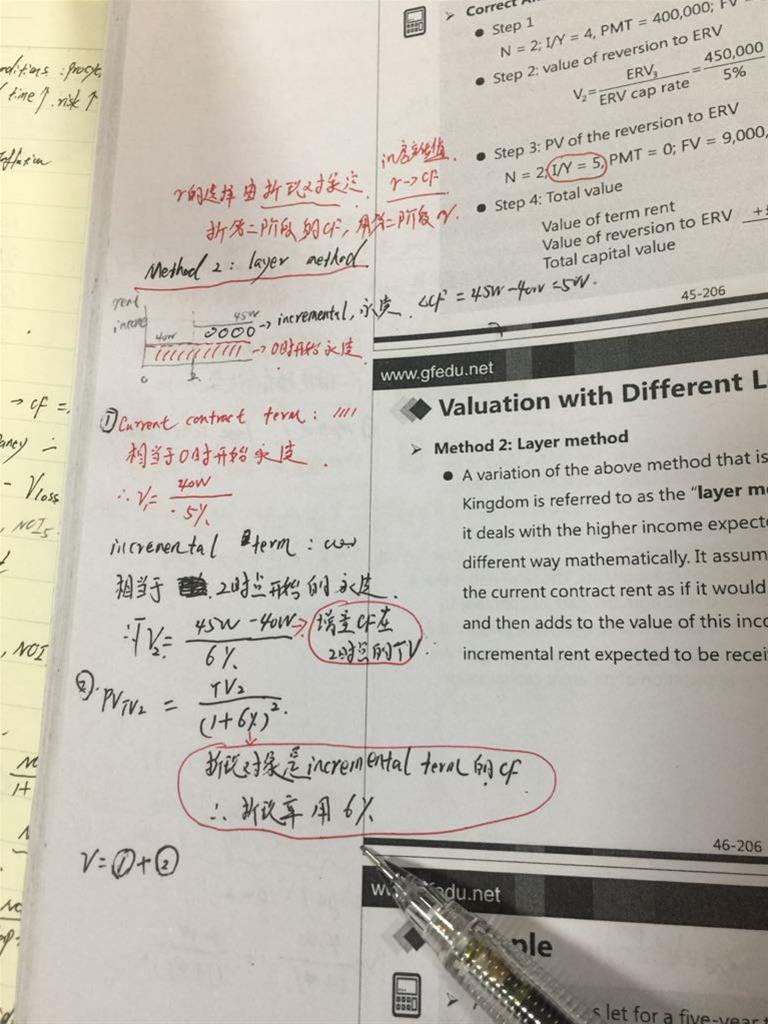 nditions :
time↑. risk↑
Correct
Step 1
N = 2; I/Y = 4, PMT = 400,000; FV
Step 2: value of reversion to ERV
V₂ = ERV₃ / ERV cap rate = 450,000 / 5%
Step 3: PV of the reversion to ERV
N = 2; I/Y = 5, PMT = 0; FV = 9,000,
Step 4: Total value
Value of term rent
Value of reversion to ERV
Total capital value
45-206
r的选择由折现对象定.
r→CF
折第二阶段的CF, 用第二阶段r.
Method 2: layer method
rent
income
40W
45W
→ incremental, 永续. ΔCF = 45W-40W=5W.
→ 0时开始永续
0 2
① Current contract term: ////
相当于0时开始永续.
∴ V₁= 40W / 5%
incremental term:
相当于 2时点开始的永续.
TV₂= 45W-40W / 6% → 增量CF在
2时点的TV
②. PV TV₂ = TV₂ / (1+6%)².
折现对象是incremental term 的CF
∴ 折现率用6%
V=①+②
→ CF =
ancy
- Vloss
NOI₅
NOI
1+
www.gfedu.net
Valuation with Different L
Method 2: Layer method
A variation of the above method that is
Kingdom is referred to as the "layer m
it deals with the higher income expect
different way mathematically. It assum
the current contract rent as if it would
and then adds to the value of this inc
incremental rent expected to be recei
46-206
edu.net
ple
s let for a five-year